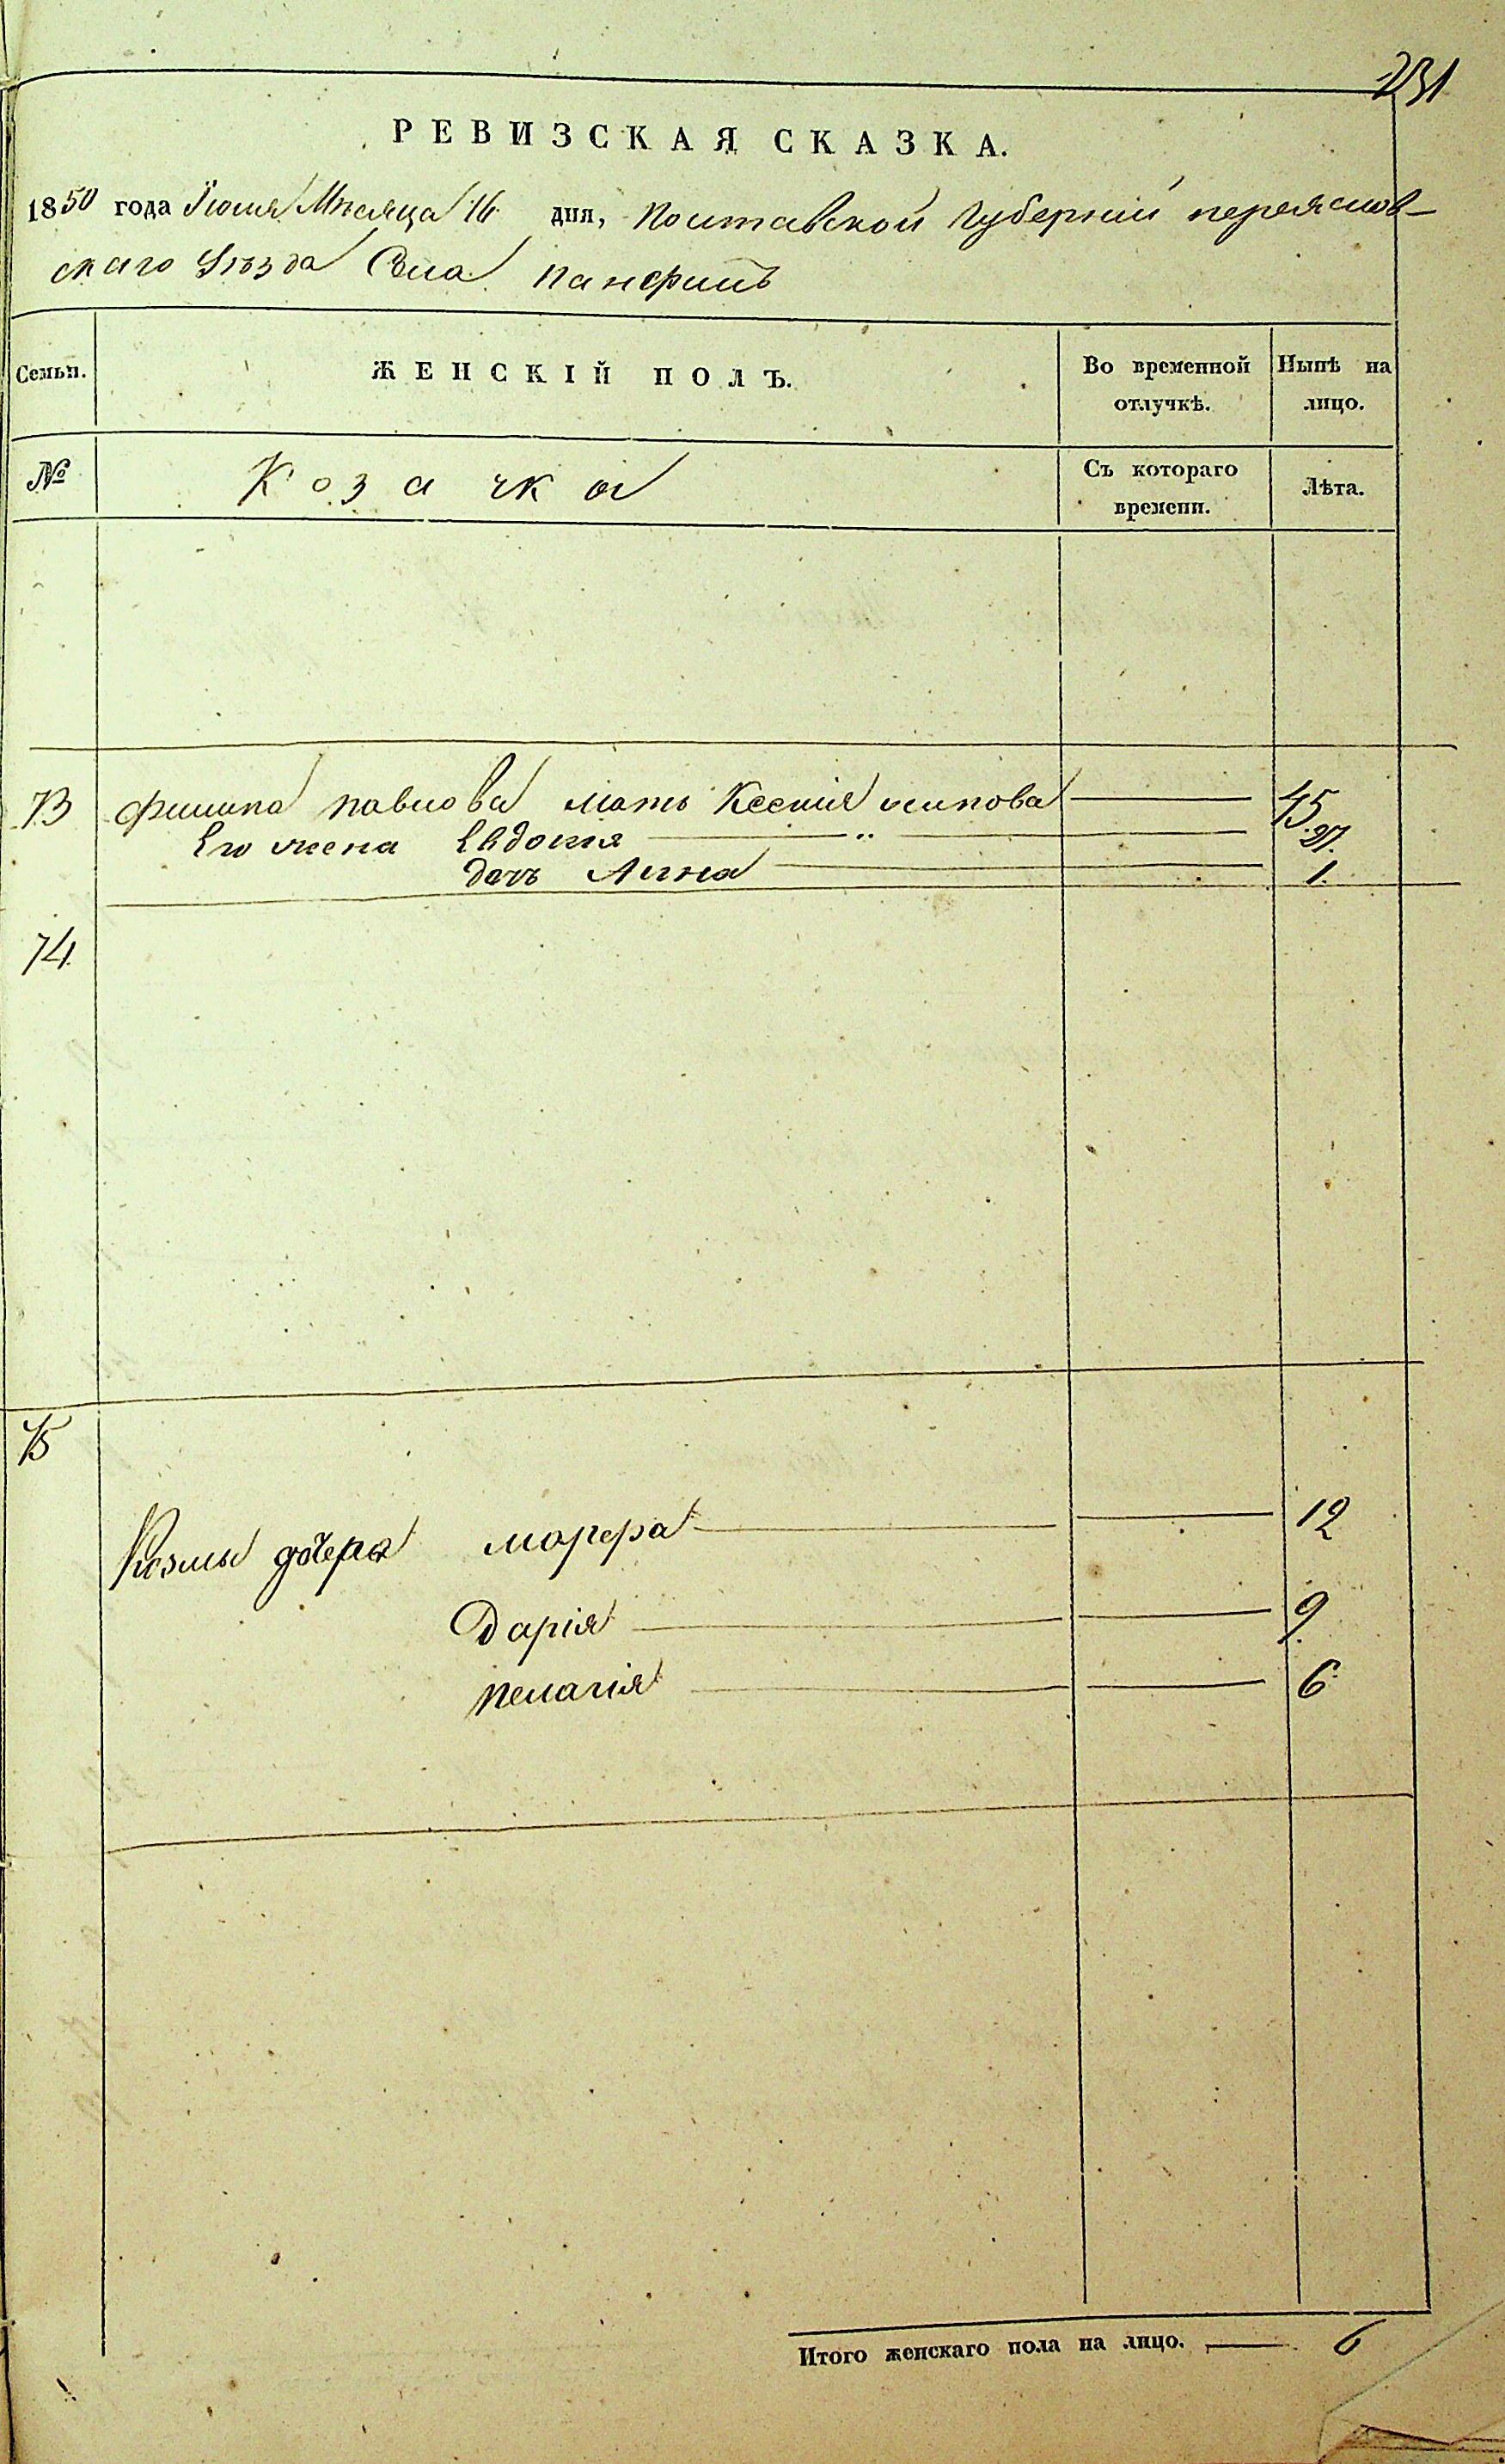 231
РЕВИЗСКАЯ СКАЗКА.
1850 года Июля Мѣсяца 16 дня, полтавской Губернии переяслов-
скаго Уѣзда Села панфилъ
Семьи. ЖЕНСКІЙ ПОЛЪ. Во временной отлучкѣ. Нынѣ на лицо.
№ Козачки Съ котораго времени. Лѣта.
73 филипа павлова мать Ксенія осипова 45
Его жена Евдокія " 27.
дочь Анна 1.
74.
75
Козмы дочера марфра 12
Дарія 9.
пелагія 6
Итого женскаго пола на лицо. 6